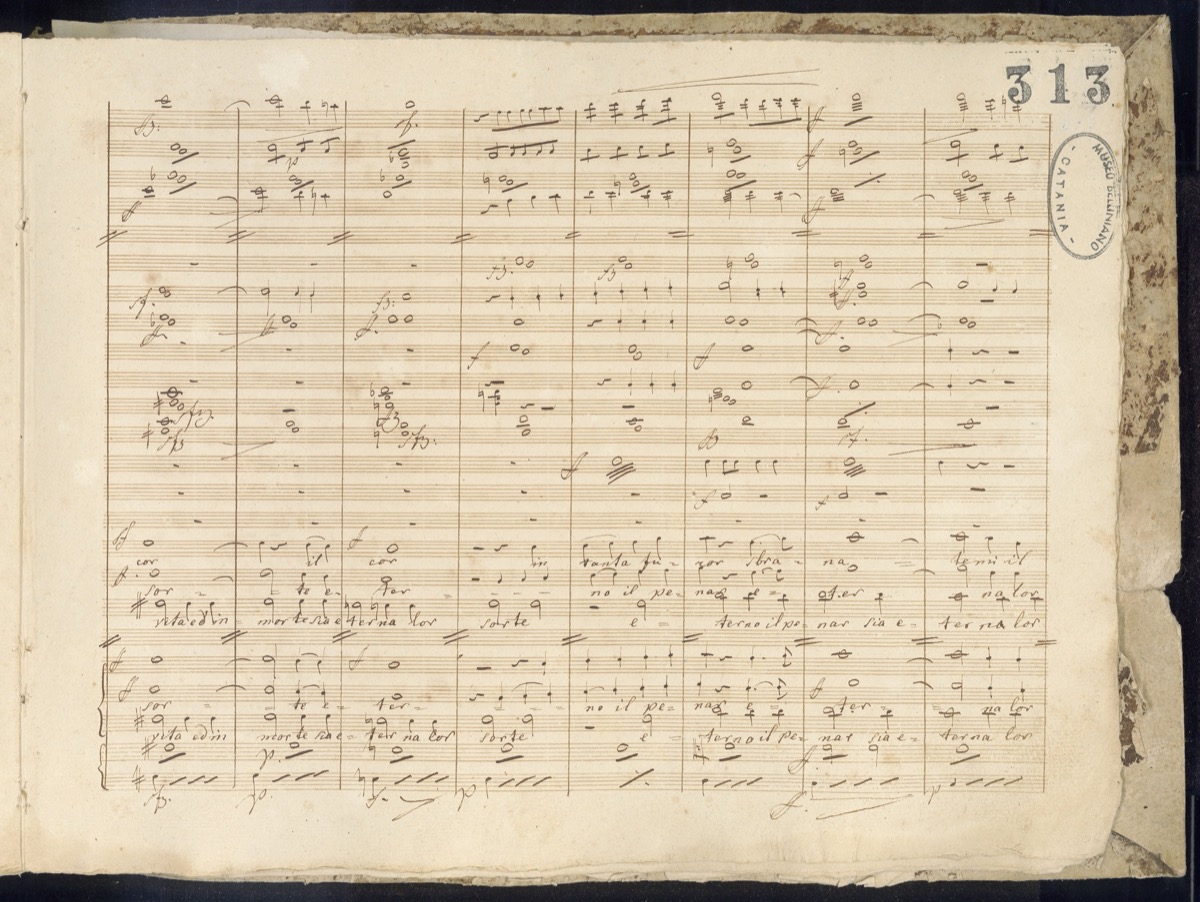 313
MUSEO BELLINIANO
- CATANIA -
cor il cor in tanta fu- ror sbra - na temi il
sor - te e- ter - - - no il pe- nar e - ter na lor
vita ed in morte sia e- terna lor sorte e - terno il pe- nar sia e- terna lor
sor - te e- ter- no il pe- nar e - ter- na lor
vita ed in morte sia e- terna lor sorte e - terno il pe- nar sia e- terna lor